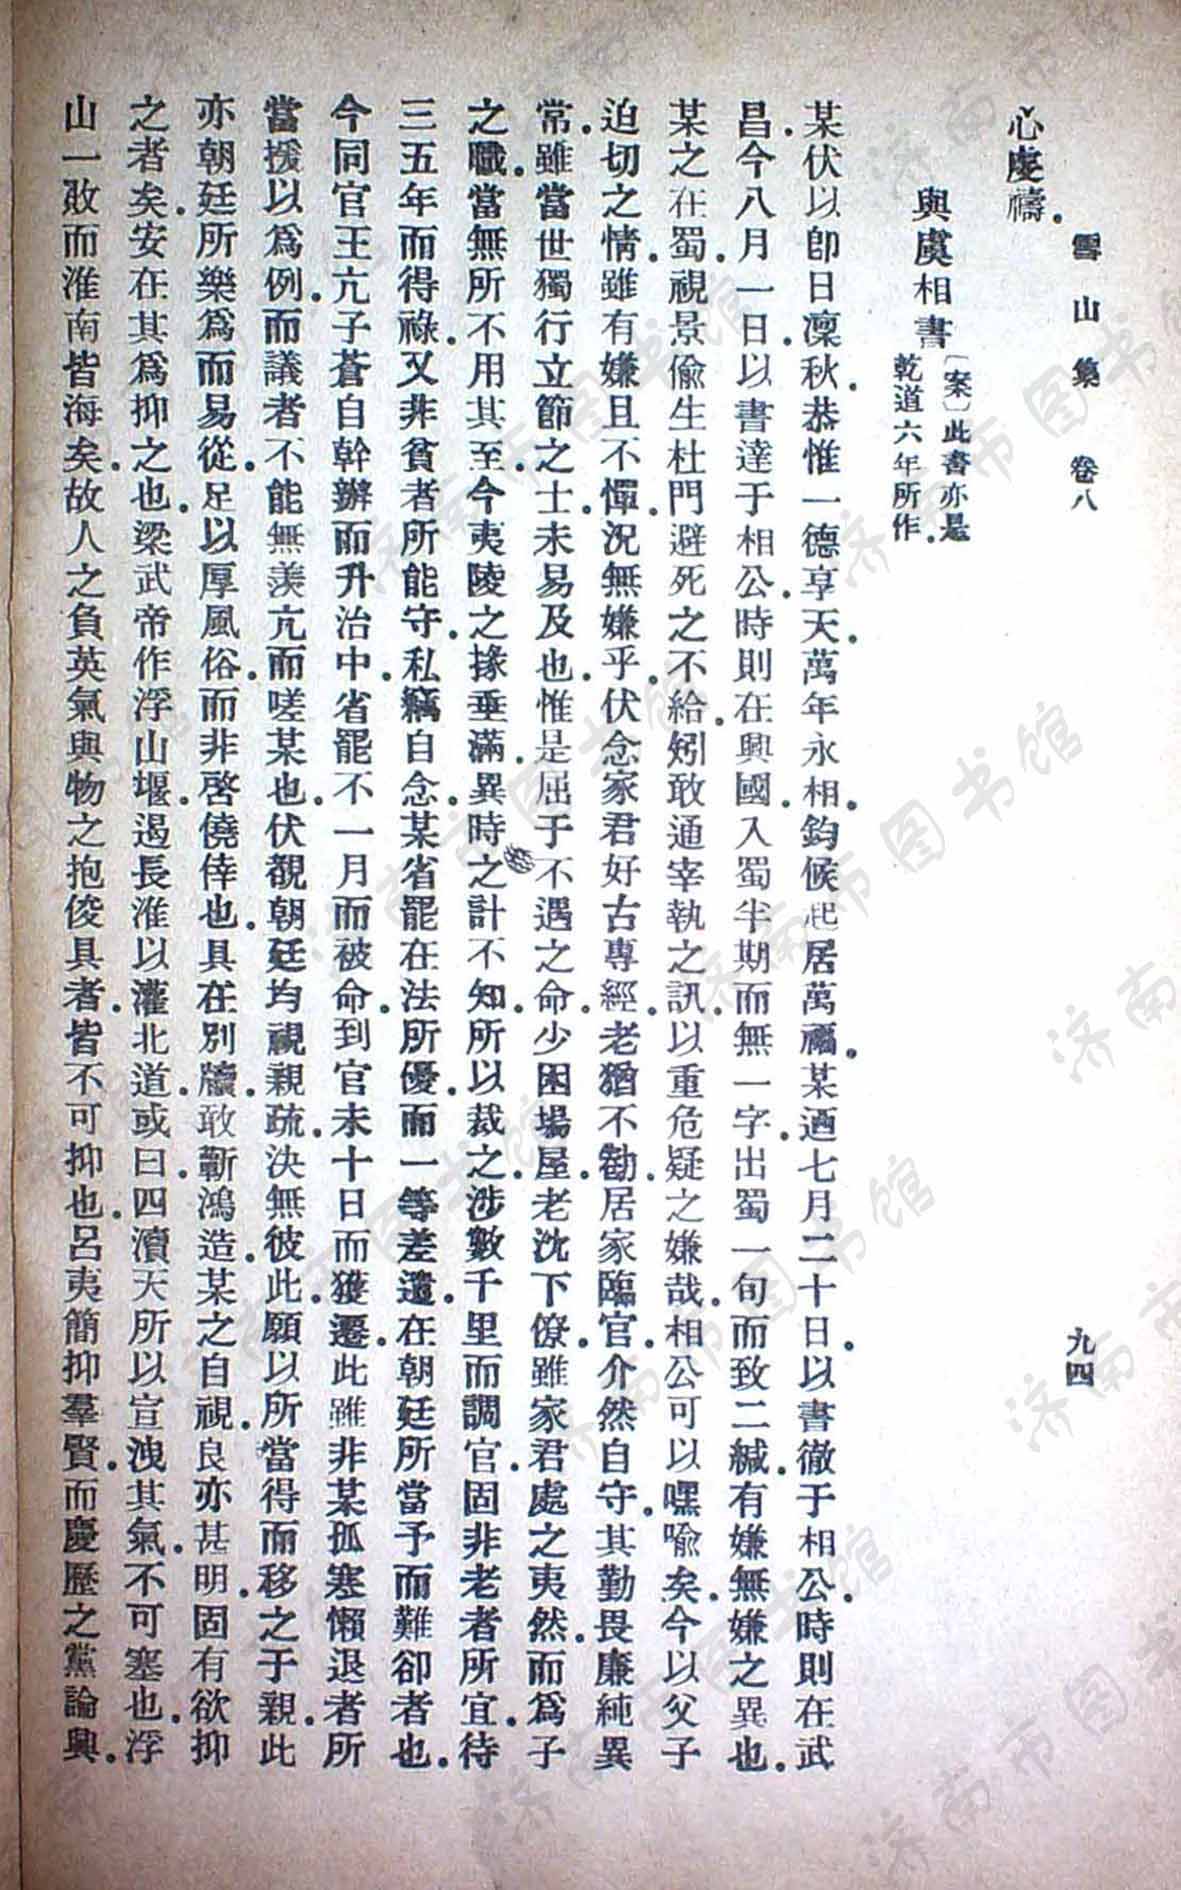 雪山集 卷八 九四
心虔禱。
與虞相書
〔案〕此書亦是
乾道六年所作。
某伏以卽日凜秋。恭惟一德享天。萬年永相。鈞候起居萬福。某迺七月二十日。以書徹于相公。時則在武
昌。今八月一日。以書達于相公。時則在興國。入蜀半期而無一字。出蜀一旬而致二緘。有嫌無嫌之異也。
某之在蜀。視景偸生。杜門避死之不給。矧敢通宰執之訊。以重危疑之嫌哉。相公可以嘿喩矣。今以父子
迫切之情。雖有嫌且不憚。況無嫌乎。伏念家君好古專經。老猶不勸。居家臨官。介然自守。其勤畏廉純異
常。雖當世獨行立節之士。未易及也。惟是屈于不遇之命。少困場屋。老沈下僚。雖家君處之夷然。而爲子
之職。當無所不用其至。今夷陵之掾垂滿。異時之計不知所以裁之。涉數千里而調官。固非老者所宜。待
三五年而得祿。又非貧者所能守。私竊自念。某省罷在法所優。而一等差遣。在朝廷所當予而難卻者也。
今同官王亢子蒼自幹辦而升治中。省罷不一月而被命。到官未十日而獲遷。此雖非某孤寒懶退者所
當援以爲例。而議者不能無羨亢而嗟某也。伏覩朝廷均視親疏。決無彼此。願以所當得而移之于親。此
亦朝廷所樂爲而易從。足以厚風俗。而非啓僥倖也。具在別牘。敢蘄鴻造。某之自視。良亦甚明。固有欲抑
之者矣。安在其爲抑之也。梁武帝作浮山堰。遏長淮以灌北道。或曰。四瀆天所以宣洩其氣。不可塞也。浮
山一敗而淮南皆海矣。故人之負英氣與物之抱俊具者。皆不可抑也。呂夷簡抑羣賢。而慶歷之黨論興。